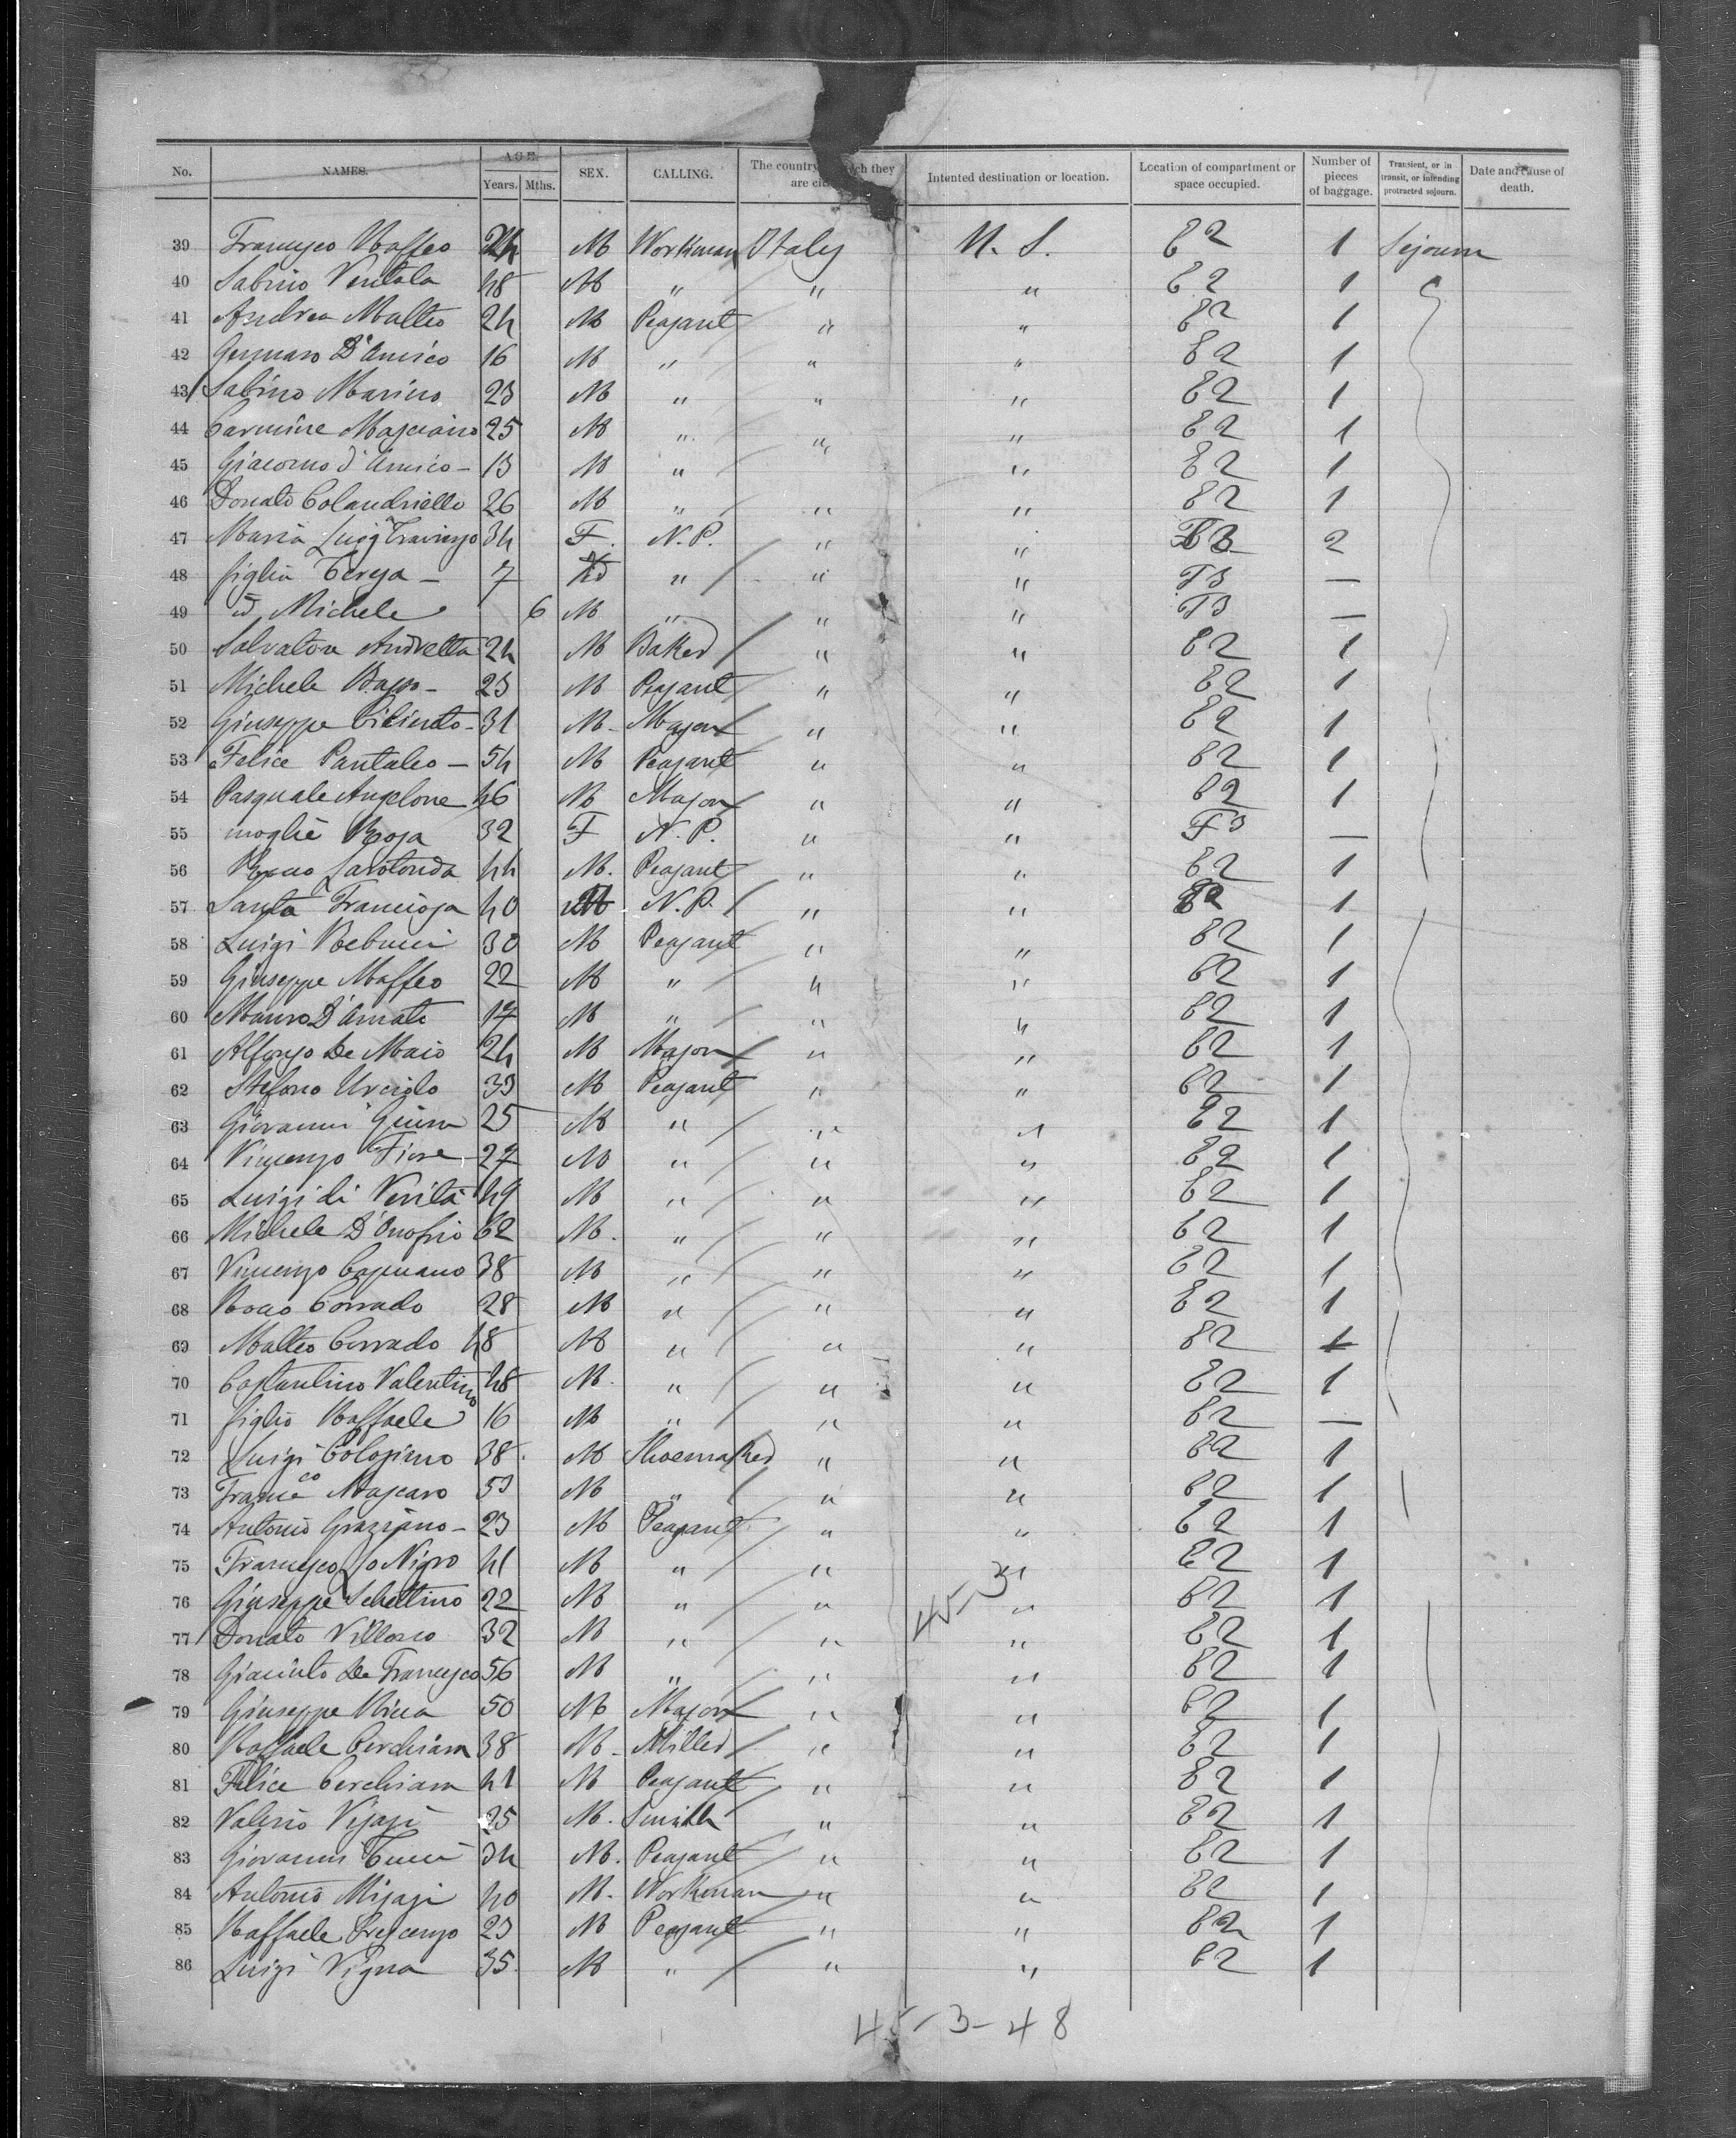 No. NAMES. AGE. Years. Mths. SEX. CALLING. The country which they are Intented destination or location. Location of compartment or space occupied. Number of pieces of baggage. Transient, or in transit, or intending protracted sojourn. Date and cause of death.
39 Francesco Maffeo 24 M Workman Italy U. S. E2 1 Sejourn
40 Sabino Ventola 48 M " " " E2 1
41 Andrea Matteo 24 M Peasant " " E2 1
42 Gennaro D'Amico 16 M " " " E2 1
43 Sabino Marino 23 M " " " E2 1
44 Carmine Masciano 25 M " " " E2 1
45 Giacomo d'Amico - 13 M " " " E2 1
46 Donato Colandriello 26 M " " " E2 1
47 Maria Luigia 34 F. N.P. " " 2
48 figlia Teresa - 7 " " " —
49 id Michele 6 M " " " —
50 Salvatore Andretta 24 M Baker " " E2 1
51 Michele 23 M Peasant " " E2 1
52 Giuseppe - 31 M - Mason " " E2 1
53 Felice Pantaleo - 54 M Peasant " " E2 1
54 Pasquale Angelone 46 M Mason " " E2 1
55 moglie Rosa 32 F N. P. " " F3 —
56 Rocco Larotonda 44 M. Peasant " " E2 1
57 Santa Franciosa 40 N. P. " " E2 1
58 Luigi 30 M Peasant " " E2 1
59 Giuseppe Maffeo 22 M " " " E2 1
60 Mauro D'Amato 17 M " " " E2 1
61 Alfonso De Maio 24 M Mason " " E2 1
62 Stefano Urciolo 33 M Peasant " " E2 1
63 Giovanni 25 M " " " E2 1
64 Vincenzo Fiore 27 M " " " E2 1
65 Luigi di Verità 49 M " " " E2 1
66 Michele D'Onofrio 62 M. " " " E2 1
67 Vincenzo Capuano 38 M " " " E2 1
68 Rocco Corrado 28 M " " " E2 1
69 Matteo Corrado 48 M " " " E2 1
70 Costantino Valentino 48 M. " " " E2 1
71 figlio Raffaele 16 M " " " E2 —
72 Luigi Colosimo 38. M Shoemaker " " E2 1
73 Francco Mascaro 53 M " " " E2 1
74 Antonio Graziano - 23 M Peasant " " E2 1
75 Francesco Lo Nigro 41 M " " " E2 1
76 Giuseppe Schettino 22 M " " 45-3 " E2 1
77 Donato 32 M " " " E2 1
78 Giacinto De Francesco 56 M " " " E2 1
79 Giuseppe 50 M Mason " " E2 1
80 Raffaele Cerchiara 38 M - Miller " " E2 1
81 Felice Cerchiara 41 M Peasant " " E2 1
82 Valerio 25 M. Smith " " E2 1
83 Giovanni 34 M. Peasant " " E2 1
84 Antonio 40 M. Workman " " E2 1
85 Raffaele 23 M Peasant " " E2 1
86 Luigi Vigna 35. M " " " E2 1
45-3-48